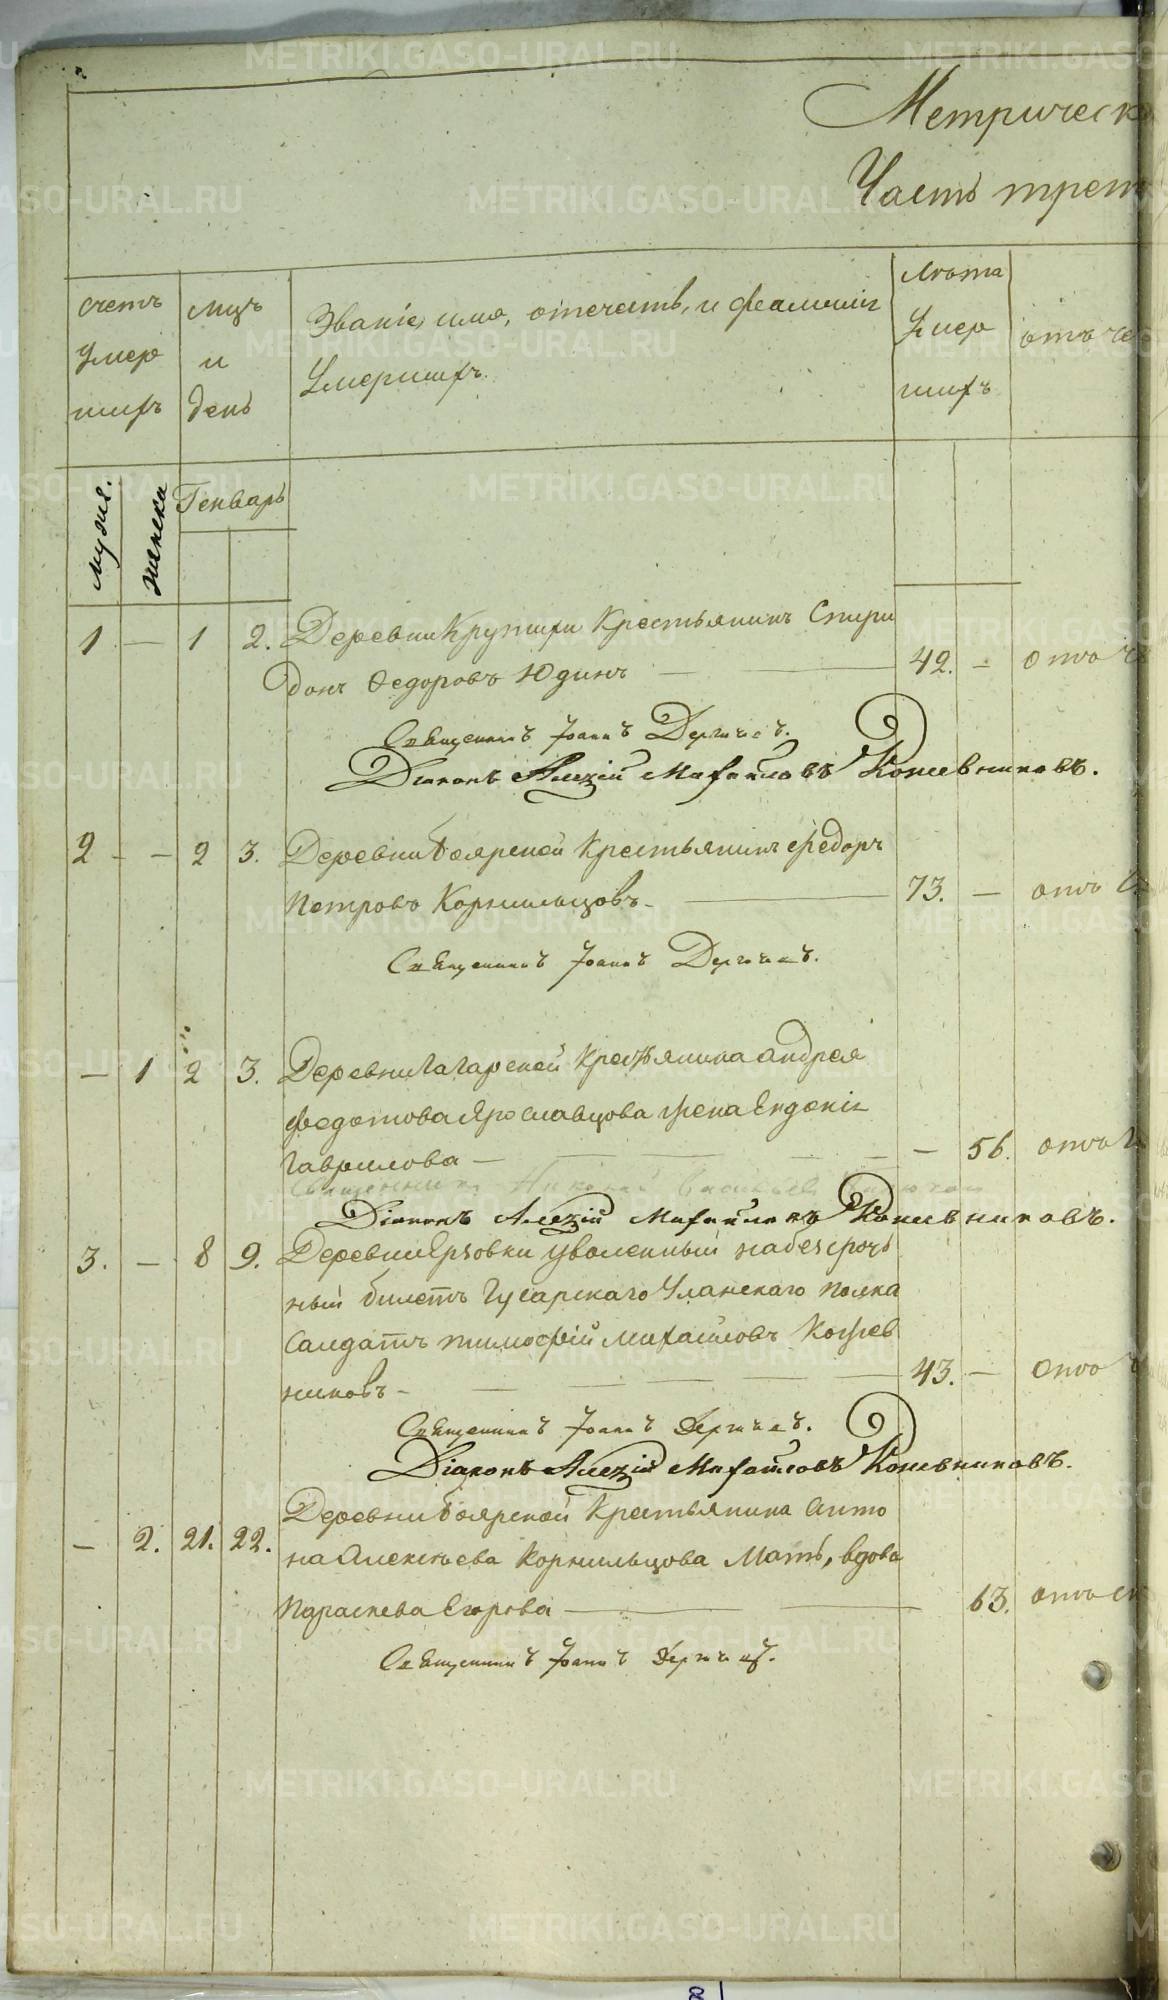 Метрическ
Часть трет
Счетъ Умер шихъ
мцъ и день
Званіе, имя, отечеств, и фамилія Умершихъ.
Лѣта Умер шихъ
отъ че
мужс.
женска
Генварь
1 — 1 2. Деревни Крутихи Крестьянинъ Спири
донъ Ѳедоровъ Юдинъ — 42. — отъ ч
Священникъ Іоаннъ
Діаконъ Алексій Михайловъ Кожевниковъ.
2 — 2 3. Деревни Боярской Крестьянинъ Федоръ
Петровъ Корнильцовъ — 73. — отъ
Священникъ Іоаннъ
— 1 2 3. Деревни Гагарской Крестьянина Андрея
Федотова Ярославцова жена Евдокія
Гаврилова — — 56. отъ
Священникъ Николай
Діаконъ Алексій Михайловъ Кожевниковъ.
3. — 8 9. Деревни Ерзовки уволенный на безсроч
ный билетъ Гусарскаго Уланскаго полка
Салдатъ Тимофей Михайловъ Кожев
никовъ — 43. — отъ
Священникъ Іоаннъ
Діаконъ Алексій Михайловъ Кожевниковъ.
— 2. 21. 22. Деревни Боярской Крестьянина Анто
на Алексѣева Корнильцова Мать, вдова
Параскева Егорова — 63. отъ
Священникъ Іоаннъ
METRIKI.GASO-URAL.RU